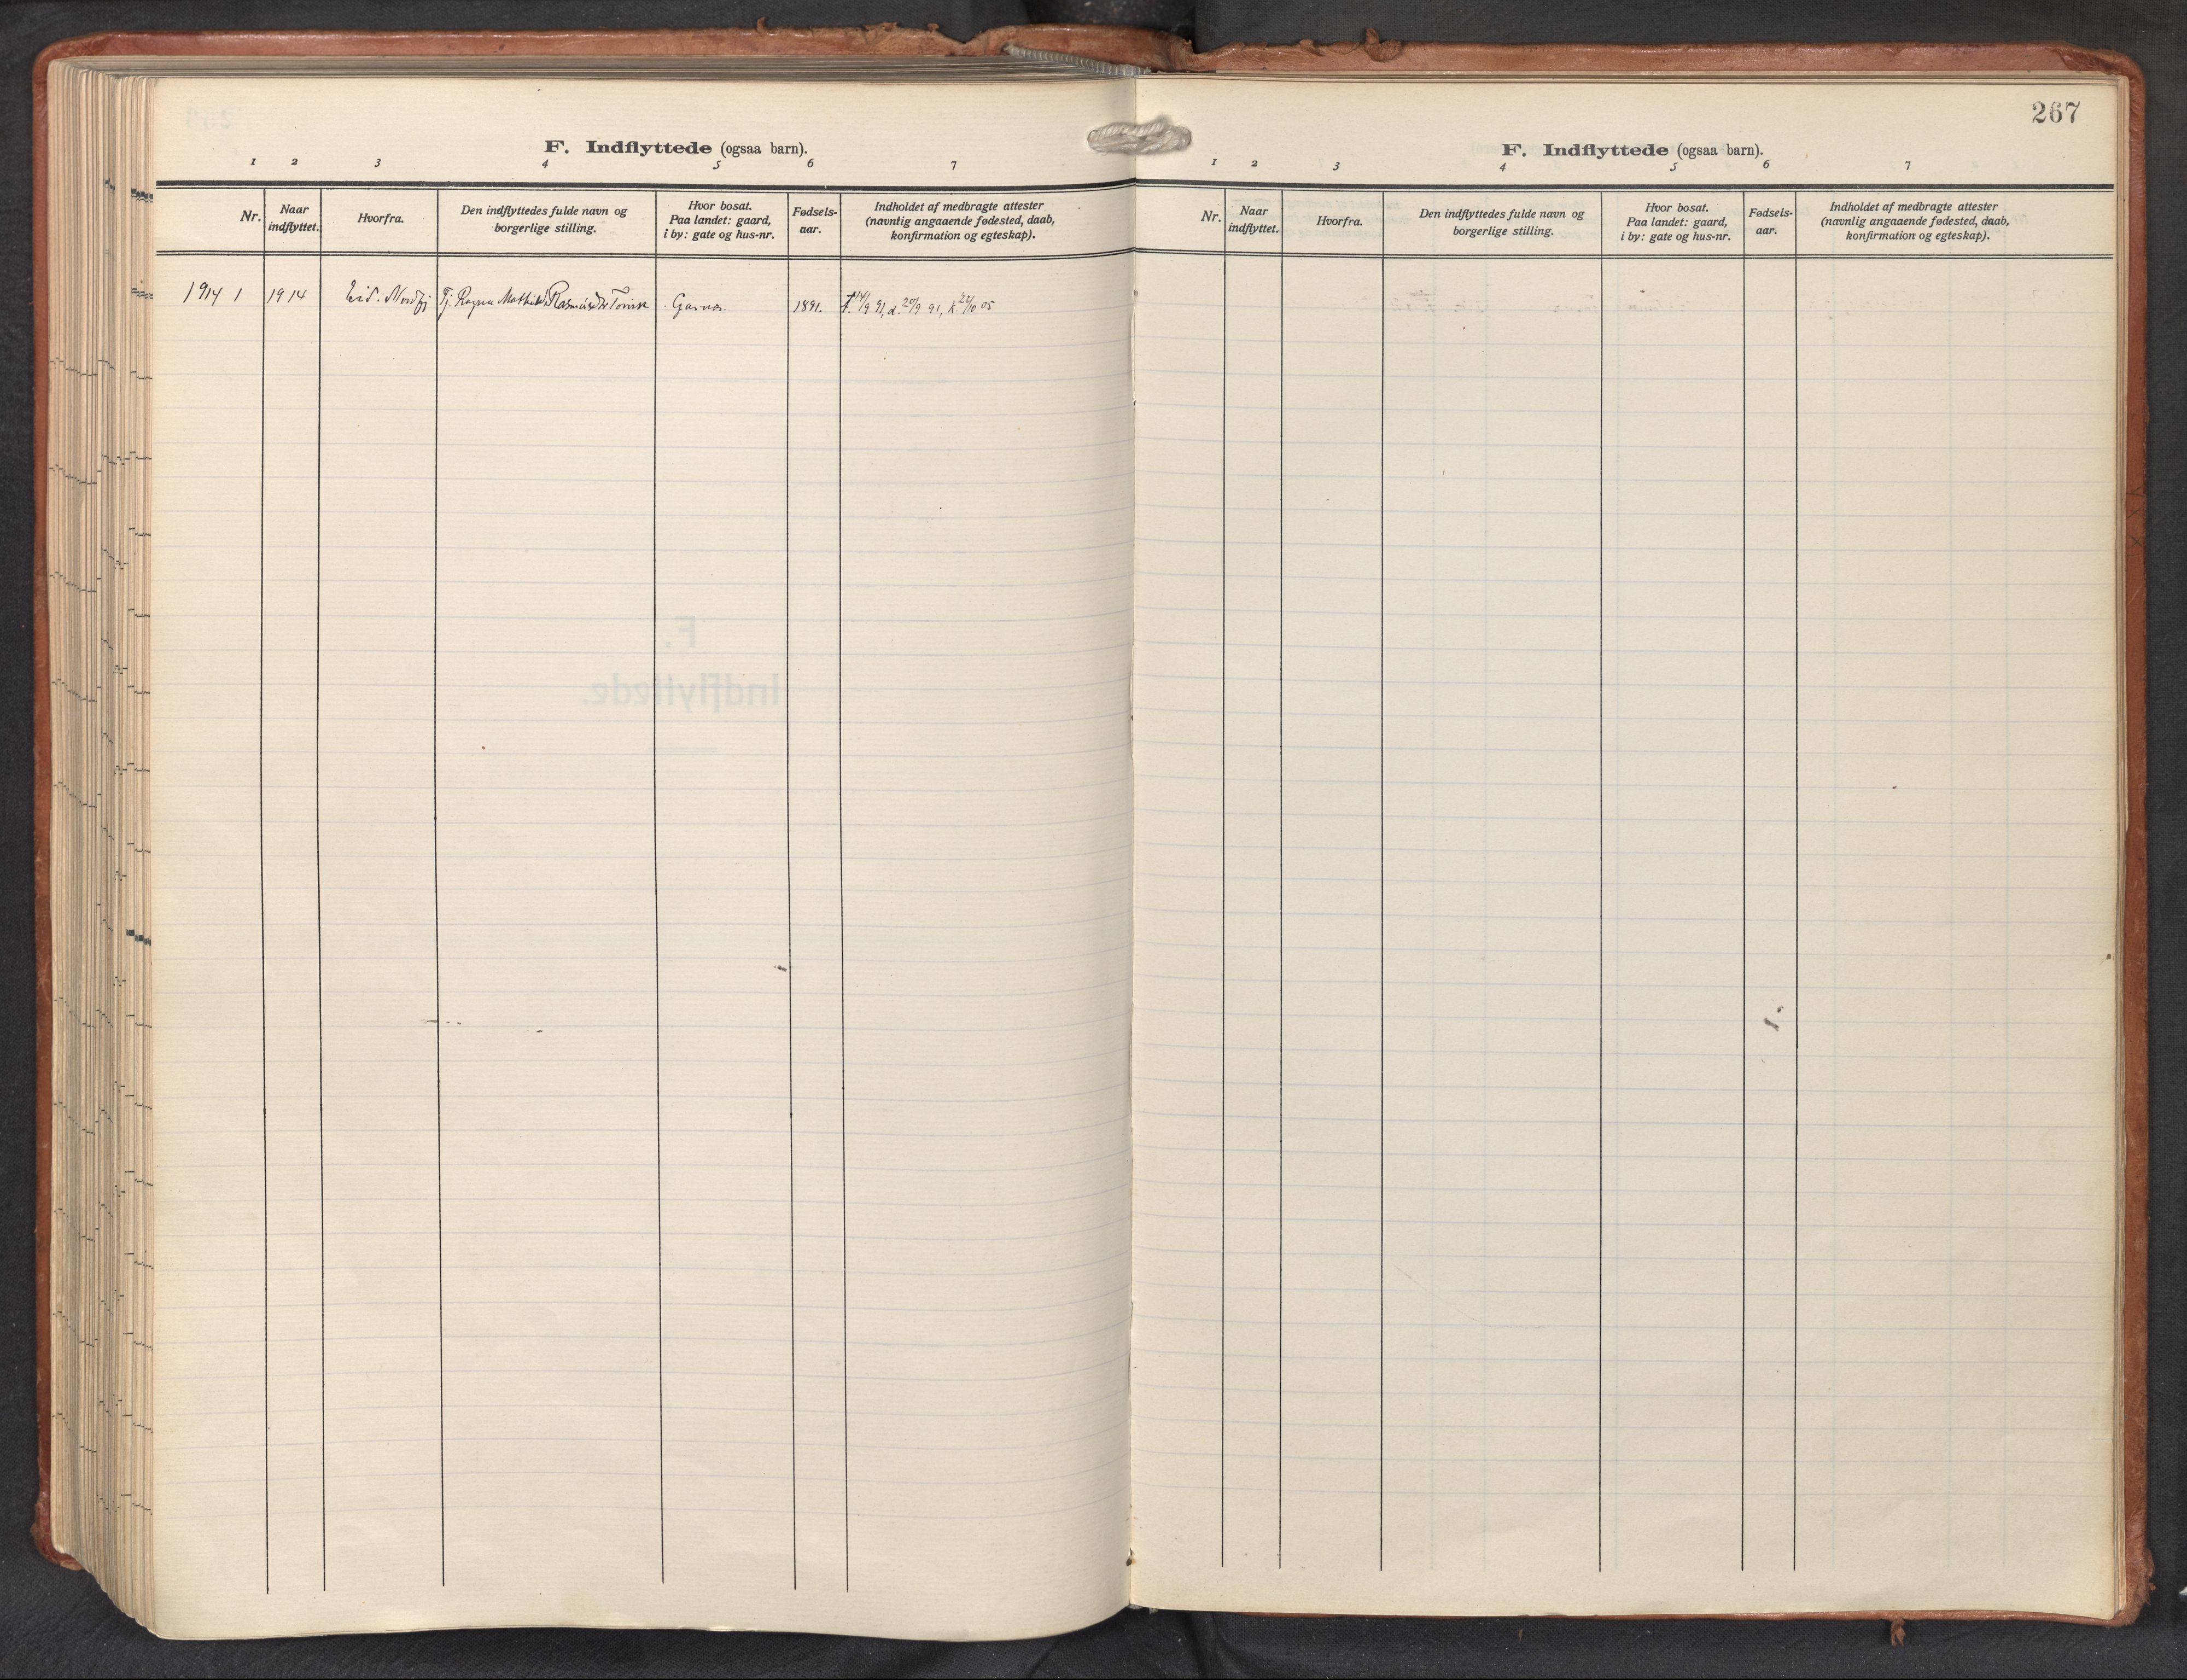 F. Indflyttede (ogsaa barn).
1 2 3 4 5 6 7
Nr.
Naar
indflyttet.
Hvorfra.
Den indflyttedes fulde navn og
borgerlige stilling.
Hvor bosat.
Paa landet: gaard,
i by: gate og hus-nr.
Fødsels-
aar.
Indholdet af medbragte attester
(navnlig angaaende fødested, daab,
konfirmation og egteskap).
1914 1 1914 Eid. Nordfj Tj. Ragna Mathilde 1891. f. 14/9 91, d. 20/9 91, k. 22/10 05
267
F. Indflyttede (ogsaa barn).
1 2 3 4 5 6 7
Nr.
Naar
indflyttet.
Hvorfra.
Den indflyttedes fulde navn og
borgerlige stilling.
Hvor bosat.
Paa landet: gaard,
i by: gate og hus-nr.
Fødsels-
aar.
Indholdet af medbragte attester
(navnlig angaaende fødested, daab,
konfirmation og egteskap).